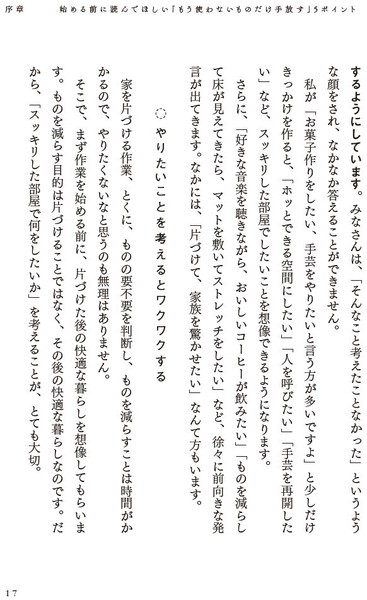 序章　始める前に読んでほしい「もう使わないものだけ手放す」5ポイント
するようにしています。みなさんは、「そんなこと考えたことなかった」というよう
な顔をされ、なかなか答えることができません。
私が「お菓子作りをしたい、手芸をやりたいと言う方が多いですよ」と少しだけ
きっかけを作ると、「ホッとできる空間にしたい」「人を呼びたい」「手芸を再開した
い」など、スッキリした部屋でしたいことを想像できるようになります。
さらに、「好きな音楽を聴きながら、おいしいコーヒーが飲みたい」「ものを減らし
て床が見えてきたら、マットを敷いてストレッチをしたい」など、徐々に前向きな発
言が出てきます。なかには、「片づけて、家族を驚かせたい」なんて方もいます。
やりたいことを考えるとワクワクする
家を片づける作業、とくに、ものの要不要を判断し、ものを減らすことは時間がか
かるので、やりたくないなと思うのも無理はありません。
そこで、まず作業を始める前に、片づけた後の快適な暮らしを想像してもらいま
す。ものを減らす目的は片づけることではなく、その後の快適な暮らしなのです。だ
から、「スッキリした部屋で何をしたいか」を考えることが、とても大切。
17